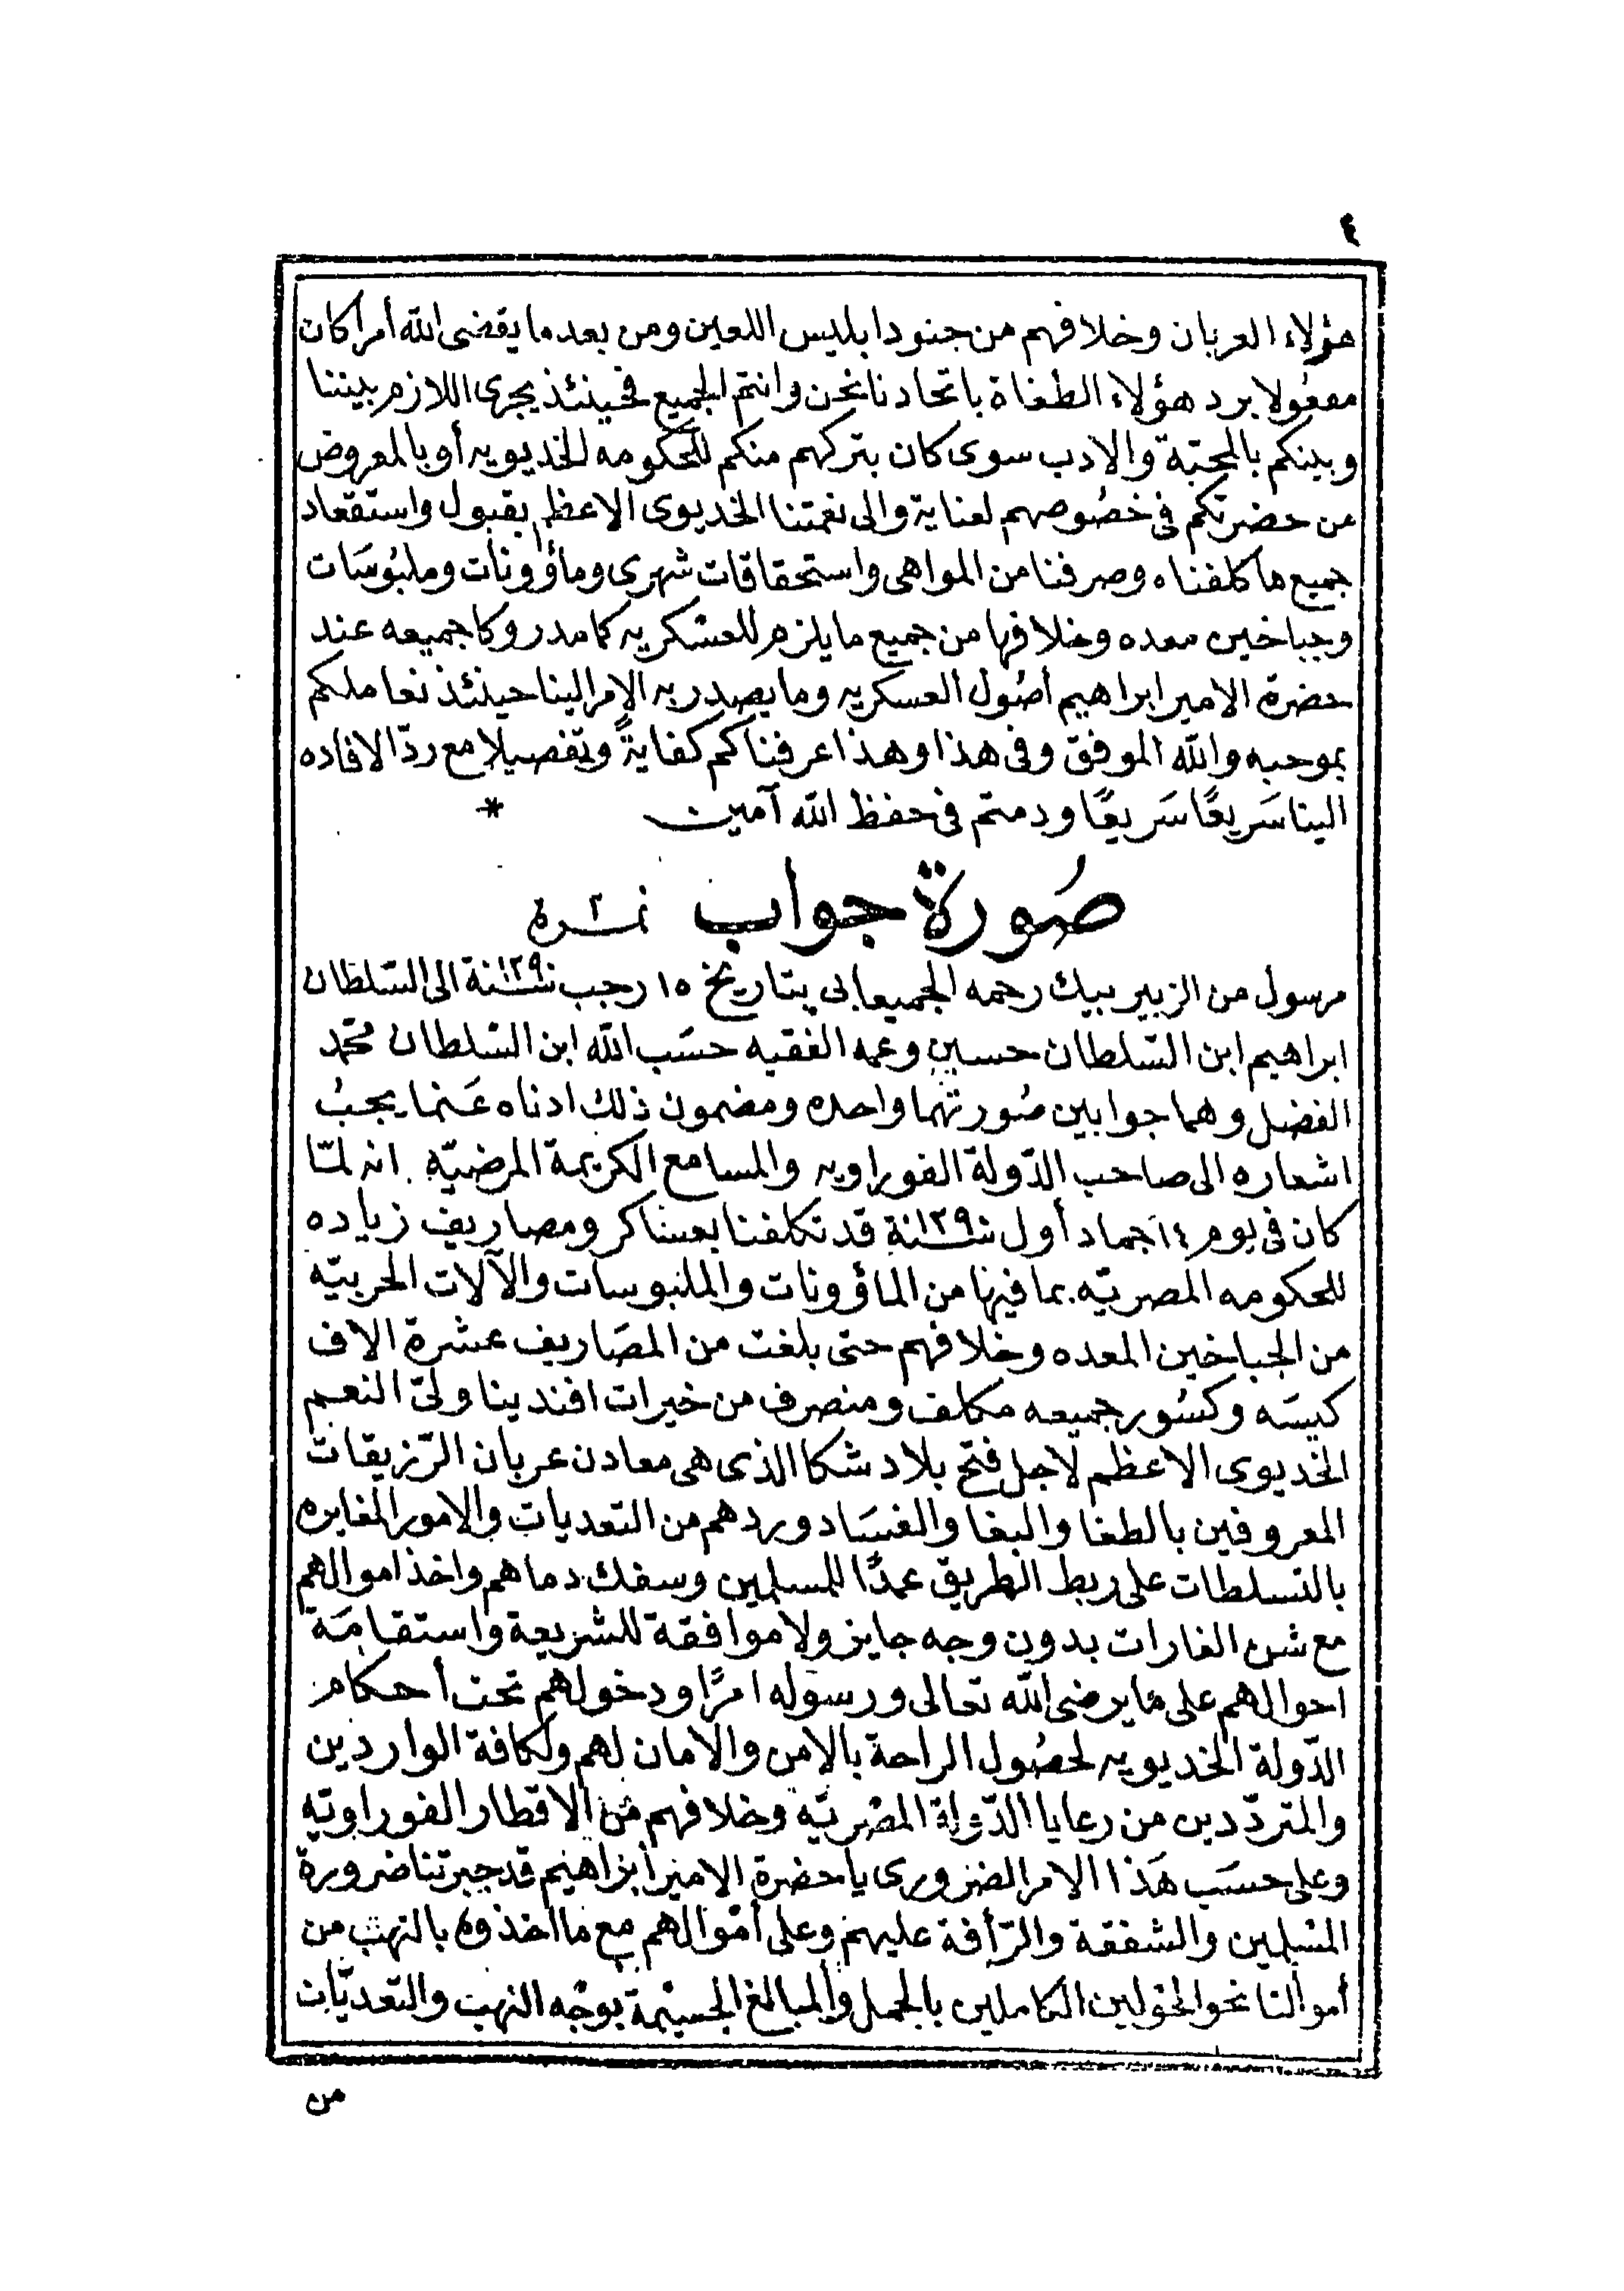 ٤
هؤلاء العربان وخلافهم من جنود ابليس اللعين ومن بعد ما يقضى الله أمرا كان
مفعُولا برد هؤلاء الطغاة باتحادنا نحن وانتم الجميع فحينئذ يجرى اللازم بيننا
وبينكم بالمحبّة والادب سوى كان بتركهم منكم للحكومه الخديويه أو بالمعروض
عن حضرتكم فى خصُوصهم لعناية والى نعمتنا الخديوى الاعظم بقبول واستقعاد
جميع ما كلفناه وصرفنا من المواهى واستحقاقات شهرى ومأؤونات وملبُوسَات
وجباخين معده وخلافها من جميع ما يلزم للعسكريه كما مدروكا جميعه عند
حضرة الامير ابراهيم أصُول العسكريه وما يصدر به الامر الينا حينئذ نعاملكم
بموجبه والله الموفق وفى هذا وهذا عرفناكم كفايةً وتفصيلا مع ردّ الافاده
الينا سَريعًا سَريعًا ودمتم فى حفظ الله آمين *
صُورة جواب نمرة ٢
مرسول من الزبير بيك رحمه الجميعابى بتاريخ ١٥ رجب سنة ١٢٩٠ الى السّلطان
ابراهيم ابن السّلطان حسين وعمه الفقيه حسَب الله ابن السّلطان محمّد
الفضل وهما جوابين صُورتهما واحده ومضمون ذلك ادناه عَنما يجبُ
اشعاره الى صاحب الدّولة الفوراويه والمسامع الكريمة المرضيّه. انه لمّا
كان فى يوم ١٤ جماد أول سنة ١٢٩٠ قد تكلفنا بعساكر ومصاريف زياده
للحكومه المصريّه. بما فيها من المأؤونات والملبوسات والآلات الحربيّه
من الجباخين المعده وخلافهم حتى بلغت من المصَاريف عشرة الاف
كيسَه وكسُور جميعه مكلف ومنصرف من خيرات افندينا ولىّ النعم
الخديوى الاعظم لاجل فتح بلاد شكا الذى هى معادن عربان الرّزيقات
المعروفين بالطغا والبغا والفسَاد وردهم من التعديات والامور المغايره
بالتسلطات على ربط الطريق عمدًا للمسلمين وسفك دماهم واخذ اموالهم
مع شن الغارات بدون وجه جايز ولا موافقة للشريعة واستقامَة
احوالهم على ما يرضى الله تعالى ورسوله امرًا ودخولهم تحت أحكام
الدّولة الخديويه لحصُول الراحة بالامن والامان لهم ولكافة الواردين
والمتردّدين من رعايا الدّولة المصْريّه وخلافهم من الاقطار الفوراويّه
وعلى حسَب هَذا الامر الضرورى يا حضرة الامير ابراهيم قد جبرتنا ضرورة
المسْلمين والشفقة والرّأفة عليهم وعلى أمْوالهم مع ما اخذوه بالنهب من
أموالنا نحو الحولين الكاملين بالجمل والمبالغ الجسيْمة بوجْه النهب والتعديّات
من